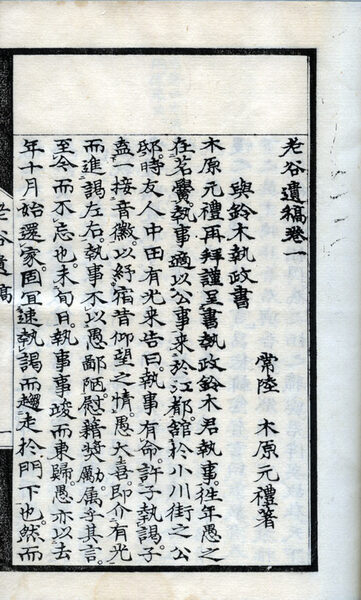 老谷遺稿卷一
常陸 木原元禮著
與鈴木執政書
木原元禮再拜謹呈書執政鈴木君執事徃年愚之
在茗黌執事適以公事来於江都舘於小川街之公
邸時友人中田有光来告曰執事有命許子執謁子
盍一接音徽以紓宿昔仰望之情愚大喜即介有光
而進謁左右執事不以愚鄙陋慰藉奬勵属乎其言
至今而不忘也未旬日執事事竣而東歸愚亦以去
年十月始還家固宜速執謁而趨走於門下也然而
老谷遺稿